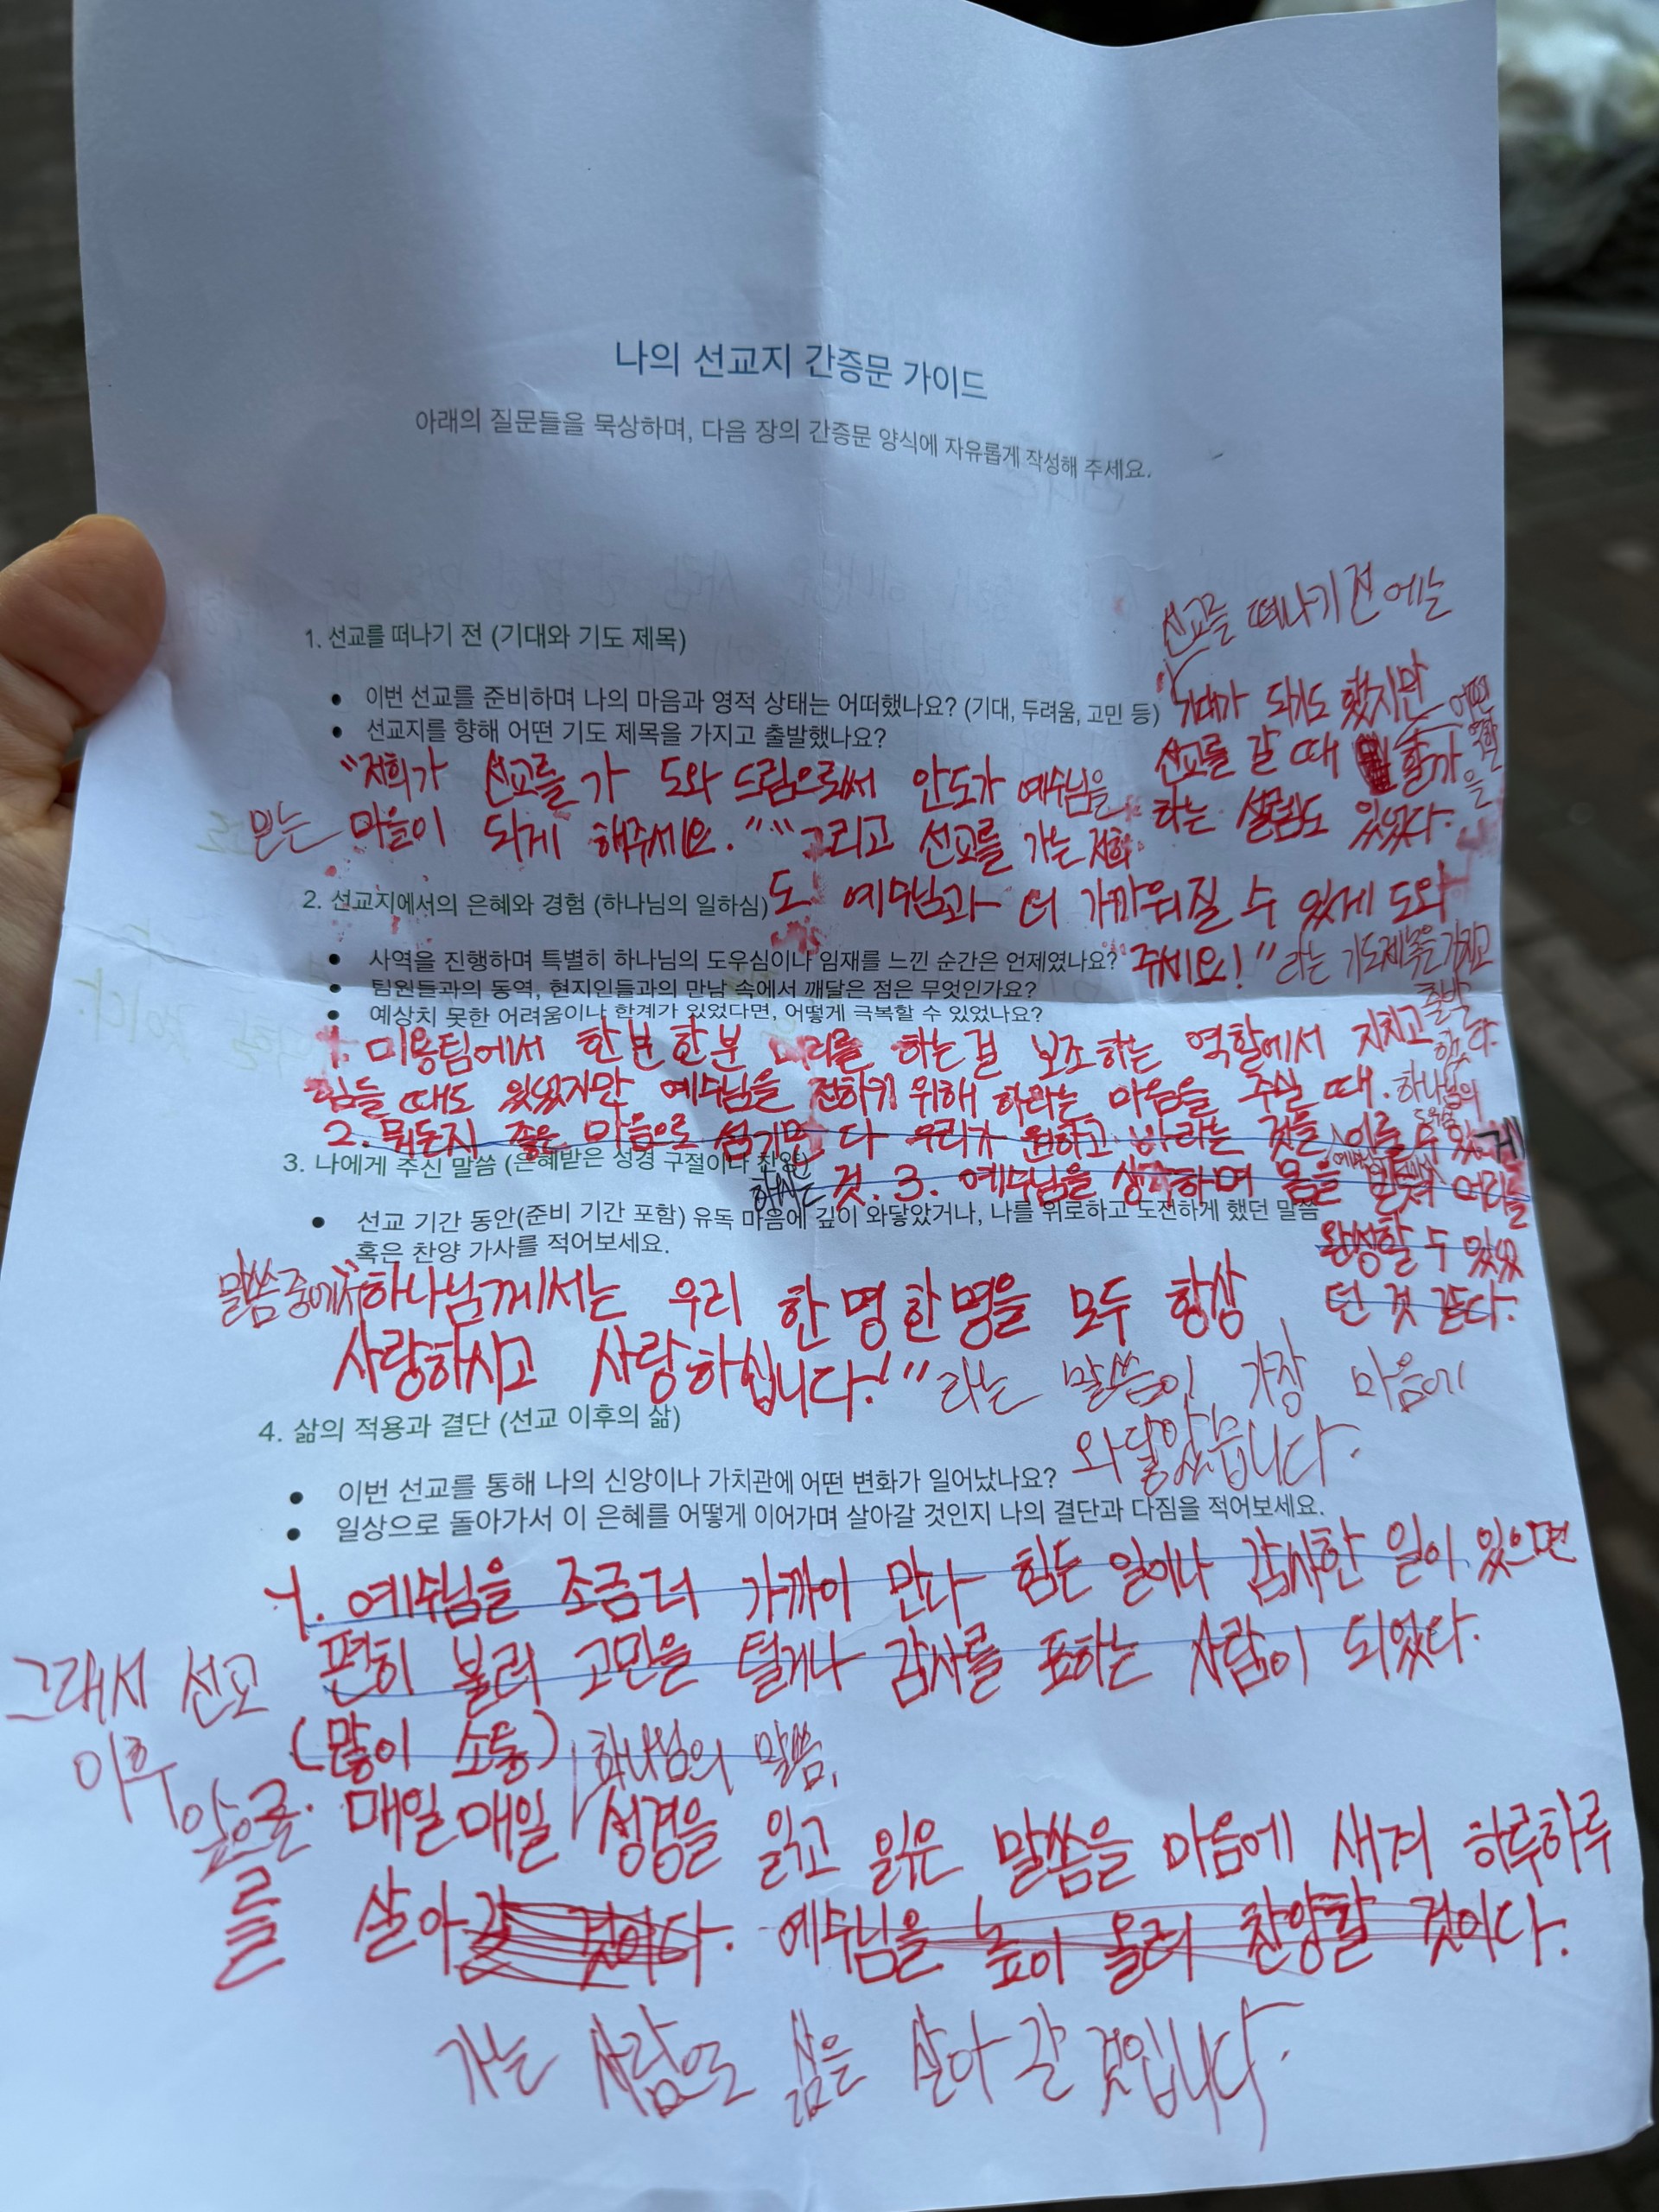 나의 선교지 간증문 가이드
아래의 질문들을 묵상하며, 다음 장의 간증문 양식에 자유롭게 작성해 주세요.
1. 선교를 떠나기 전 (기대와 기도 제목)
선교를 떠나기 전에는
• 이번 선교를 준비하며 나의 마음과 영적 상태는 어떠했나요? (기대, 두려움, 고민 등)
기대가 되기도 했지만 어떤 역할을
• 선교지를 향해 어떤 기도 제목을 가지고 출발했나요?
선교를 갈 때 할까
하는 설렘도 있었다.
"저희가 선교를 가 도와 드림으로써 안도가 예수님을
믿는 마을이 되게 해주세요." "그리고 선교를 가는 저희
2. 선교지에서의 은혜와 경험 (하나님의 일하심)
도 예수님과 더 가까워질 수 있게 도와
주세요!" 라는 기도제목을 가지고 출발
• 사역을 진행하며 특별히 하나님의 도우심이나 임재를 느낀 순간은 언제였나요?
• 팀원들과의 동역, 현지인들과의 만남 속에서 깨달은 점은 무엇인가요?
• 예상치 못한 어려움이나 한계가 있었다면, 어떻게 극복할 수 있었나요?
1. 미용팀에서 한분 한분 머리를 하는걸 보조하는 역할에서 지치고
힘들 때도 있었지만 예수님을 전하기 위해 하라는 마음을 주실 때. 하나님의
2. 뭐든지 좋은 마음으로 섬기면 다 우리가 원하고 바라는 것을 이룰 수 있게
하시는 것. 3. 예수님을 생각하며 몸을 머리를
완성할 수 있었
던 것 같다.
3. 나에게 주신 말씀 (은혜받은 성경 구절이나 찬양)
• 선교 기간 동안(준비 기간 포함) 유독 마음에 깊이 와닿았거나, 나를 위로하고 도전하게 했던 말씀
혹은 찬양 가사를 적어보세요.
말씀 중에서 "하나님께서는 우리 한 명 한 명을 모두 항상
사랑하시고 사랑하십니다!" 라는 말씀이 가장 마음에
와닿았습니다.
4. 삶의 적용과 결단 (선교 이후의 삶)
• 이번 선교를 통해 나의 신앙이나 가치관에 어떤 변화가 일어났나요?
• 일상으로 돌아가서 이 은혜를 어떻게 이어가며 살아갈 것인지 나의 결단과 다짐을 적어보세요.
1. 예수님을 조금 더 가까이 만나 힘든 일이나 감사한 일이 있으면
편히 불러 고민을 털거나 감사를 표하는 사람이 되었다.
(많이 소통) 하나님의 말씀,
그래서 선교
이후 앞으로 매일매일 성경을 읽고 읽은 말씀을 마음에 새겨 하루하루
를 살아갈 것이다. 예수님을 높이 올려 찬양할 것이다.
가는 사람으로 삶을 살아 갈 것입니다.